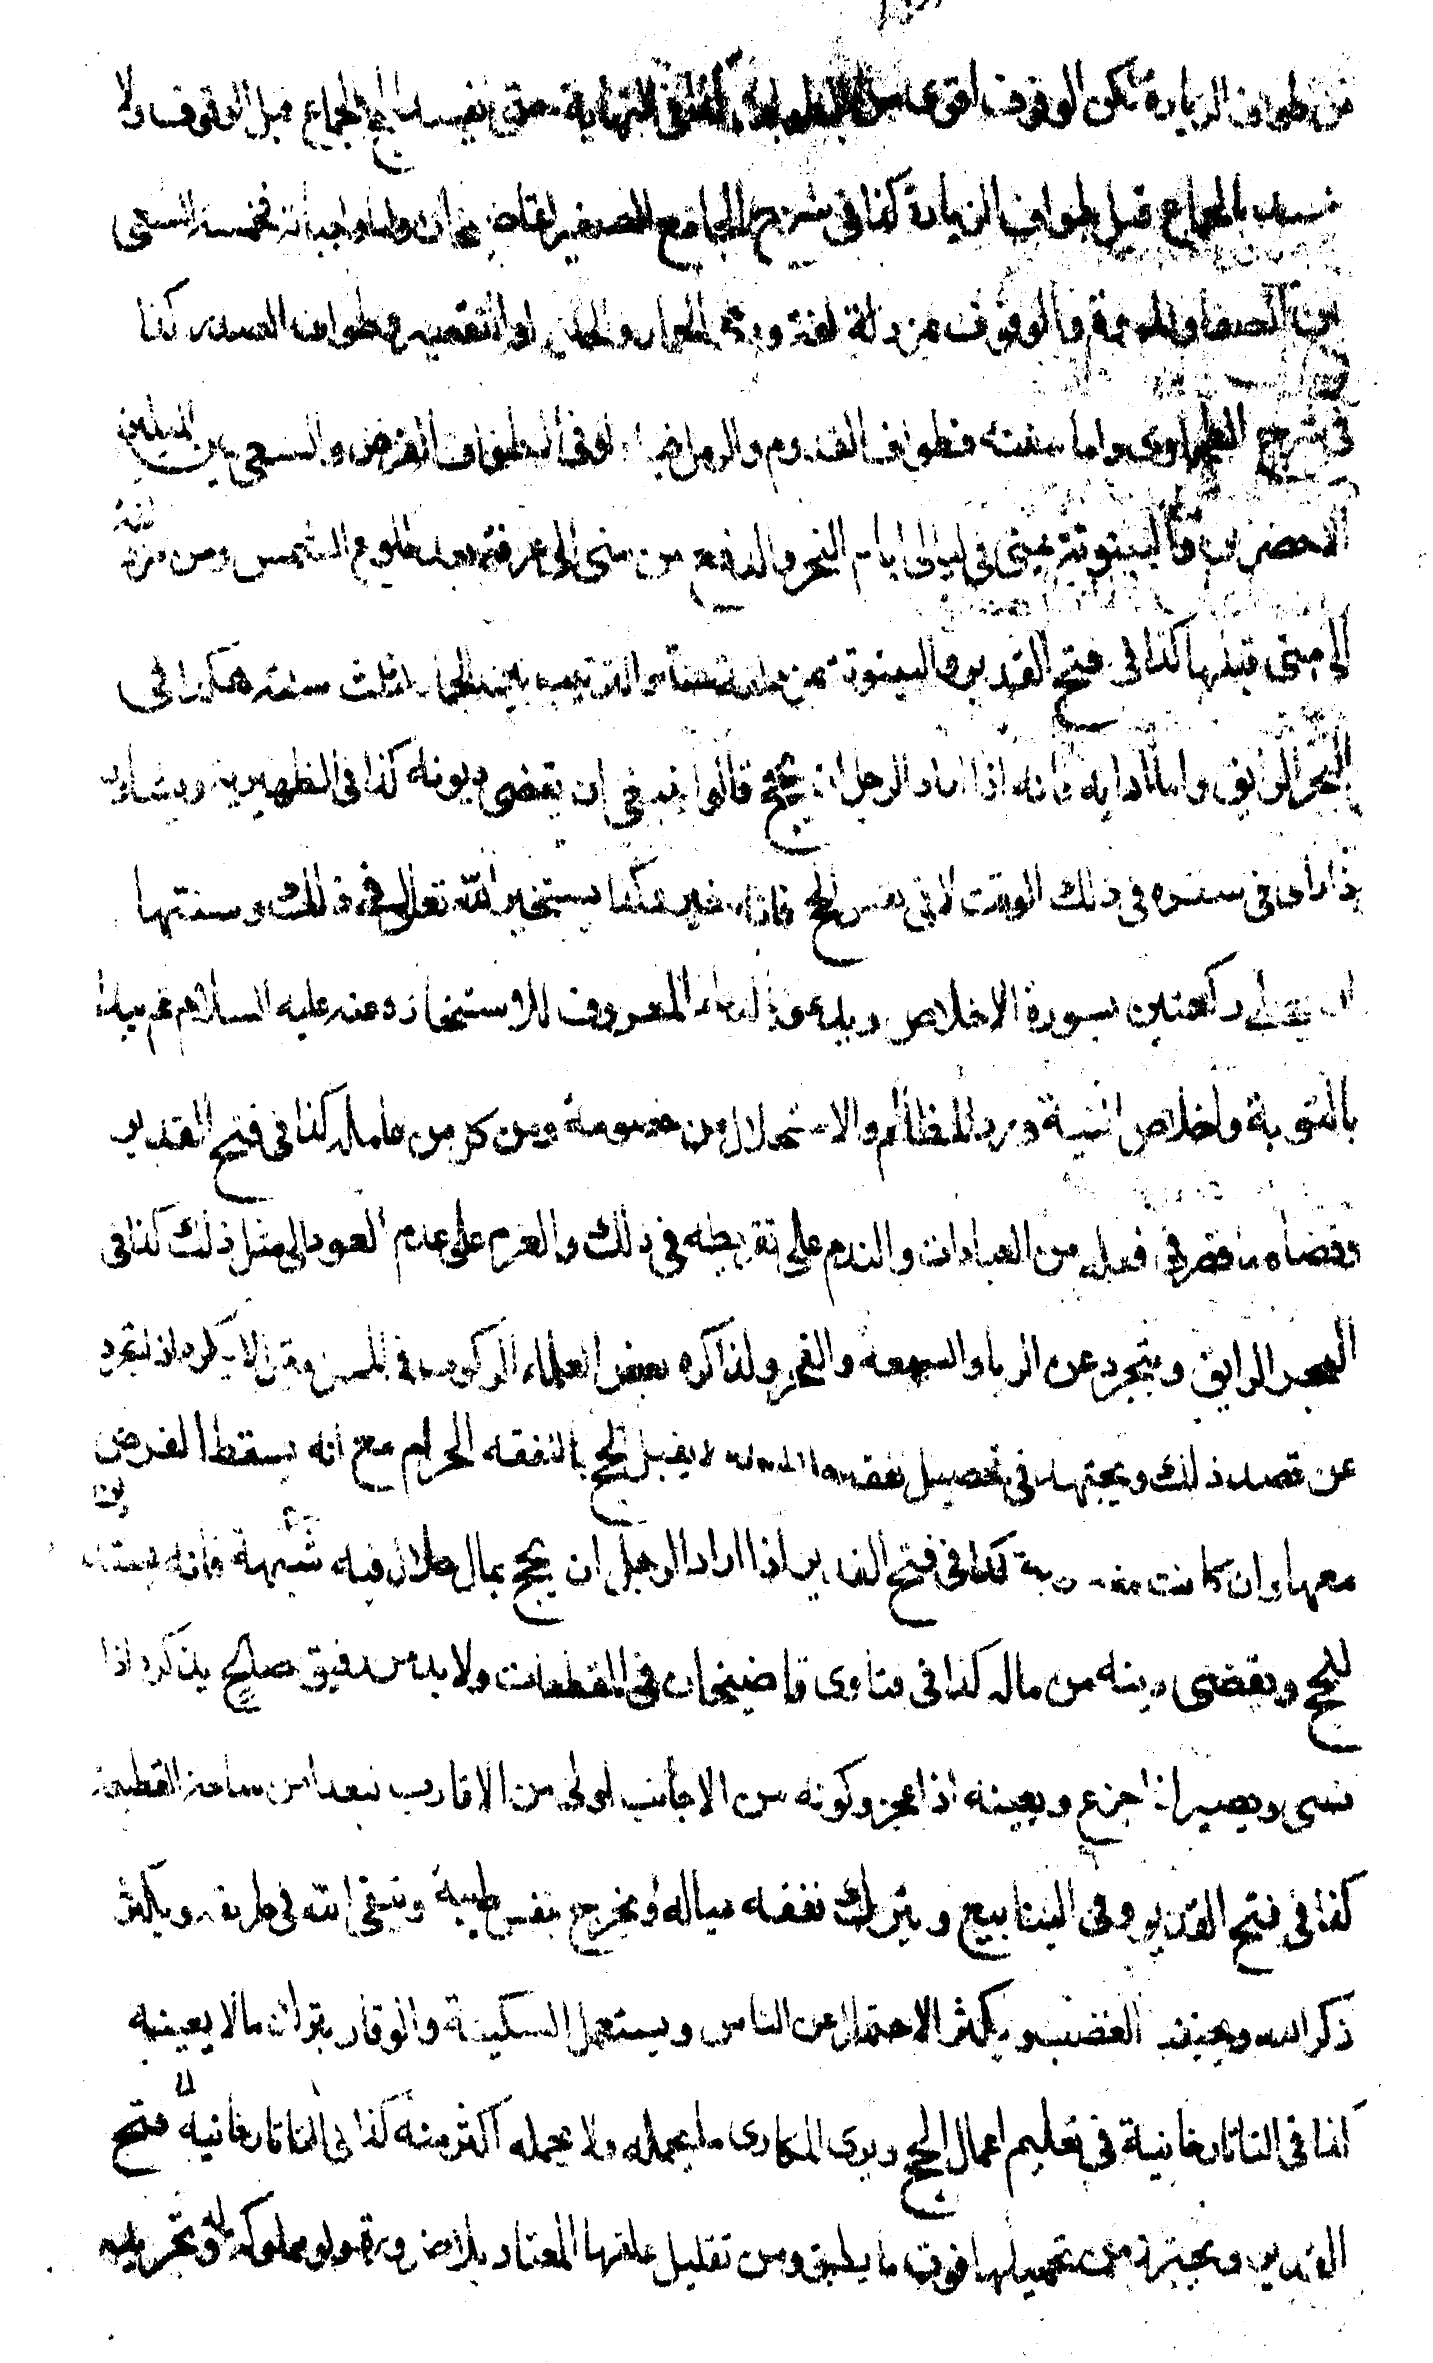 من طواف الزيارة لكن الوقوف اقوى من الطواف كذا في النهاية حتى يفسد الحج بالجماع قبل الوقوف ولا
يفسد بالجماع قبل طواف الزيارة كذا في شرح الجامع الصغير لقاضيخان واما واجباته فخمسة السعى
بين الصفا والمروة والوقوف بمزدلفة ورمى الجمار والحلق او التقصير وطواف الصدر كذا
في شرح الطحاوى واما سننه فطواف القدوم والرمل فيه او في الطواف الفرض والسعى بين الميلين
الاخضرين والبيتوتة بمنى في ليالى ايام النحر والدفع من منى الى عرفة بعد طلوع الشمس ومن مزدلفة
الى منى قبلها كذا في فتح القدير والبيتوتة بمزدلفة سنة والترتيب بين الجمار الثلث سنة هكذا في
البحر الرايق واما ادابه فانه اذا اراد الرجل ان يحج قالوا ينبغى ان يقضى ديونه كذا في الظهيرية ويشاور
ذا راى في سفره في ذلك الوقت لا في نفس الحج فانه خير وكذا يستخير الله تعالى في ذلك وسنتها
ان يصلى ركعتين بسورة الاخلاص ويدعو بالدعاء المعروف للاستخارة وعنه عليه السلام ثم يبدا
بالتوبة واخلاص النية ورد المظالم والاستحلال من خصومه ومن كل من عامله كذا في فتح القدير
وقضاء ما قصر في فعله من العبادات والندم على تفريطه في ذلك والعزم على عدم العود الى مثل ذلك كذا في
البحر الرايق ويتجرد عن الريا والسمعة والفخر ولذا كره بعض العلماء الركوب في المحمل وقيل لا يكره اذا تجرد
عن قصد ذلك ويجتهد في تحصيل نفقة حلال فانه لا يقبل الحج بالنفقه الحرام مع انه يسقط الفرض
معها وان كانت مغصوبة كذا في فتح القدير اذا اراد الرجل ان يحج بمال حلال فيه شبهة فانه يستدين
للحج ويقضى دينه من ماله كذا في فتاوى قاضيخان في المقطعات ولا بد من رفيق صالح يذكره اذا
نسى ويصبر اذا جزع ويعينه اذا عجز وكونه من الاجانب اولى من الاقارب تبعدا من ساحة القطيعة
كذا في فتح القدير وفي الينابيع ويترك نفقه عياله ويخرج بنفس طيبة ويتقى الله في طريقه ويكثر
ذكر الله ويجتنب الغضب ويكثر الاحتمال عن الناس ويستعمل السكينة والوقار بترك ما لا يعينه
كذا في التاتارخانية في تعليم اعمال الحج ويرى المكارى ما يحمله ولا يحمله اكثر منه كذا في التاتارخانية فتح
القدير ويحترز من تحميلها فوق ما يطيق ومن تقليل علفها المعتاد بلا ضرورة ولو مملوكة له وتجريده